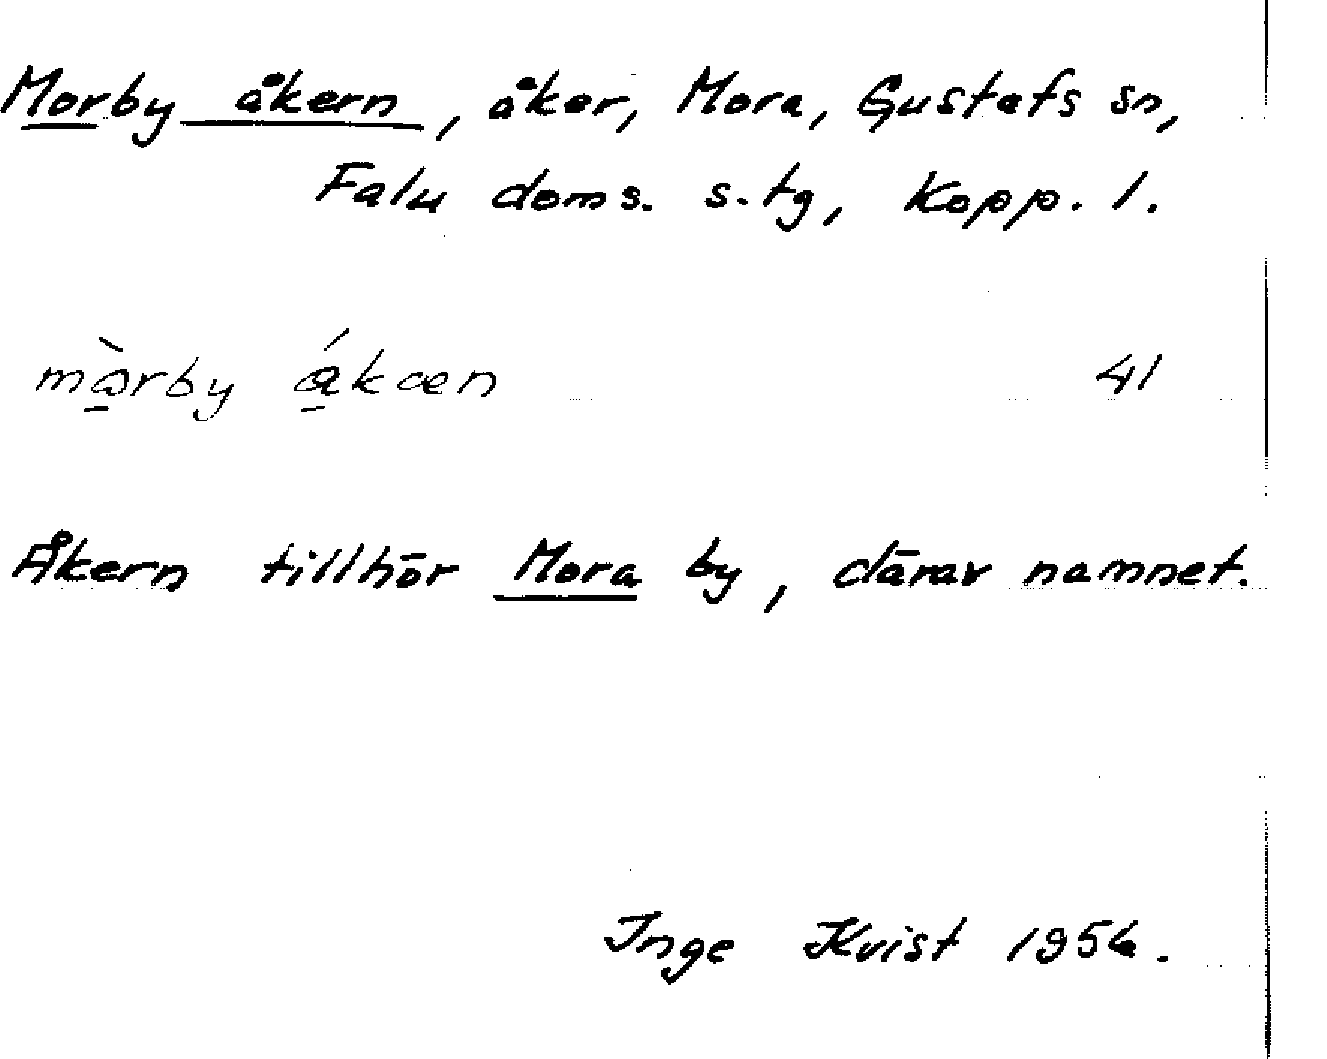 Morby åkern, åker, Mora, Gustafs sn,
Falu doms. s.tg, Kopp. l.
màrby ákæn 41
Åkern tillhör Mora by, därav namnet.
Inge Kvist 1956.